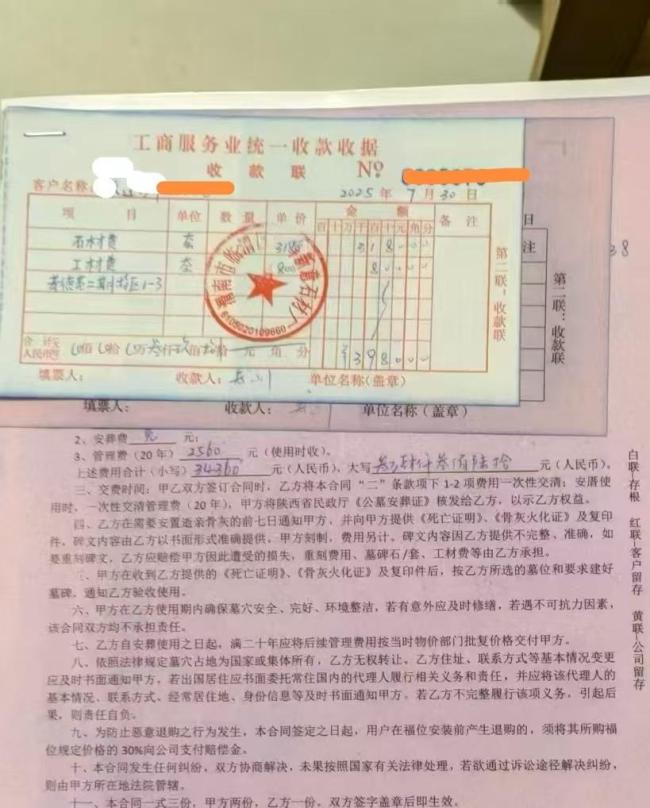 工商服务业统一收款收据
收款联 №
客户名称
2025年7月30日
项目 单位 数量 单价 金额 备注
百十万千百十元角分
石木才费 套 3180 318000
工木才费 套 800 80000
区1-3
合计
人民币 元角分 ¥398000
填票人: 收款人: 单位名称(盖章)
第二联:收款联
渭南市临渭 石材厂
日
注
38
第二联:收款联
填票人: 收款人: 单位名称(盖章)
2、安葬费 免 元;
3、管理费(20年) 2560 元(使用时收)。
上述费用合计(小写) 34360 元(人民币),大写 叁万肆仟叁佰陆拾 元(人民币)。
三、交费时间:甲乙双方签订合同时,乙方将本合同“二”条款项下1-2项费用一次性交清;安厝使
用时,一次性交清管理费(20年),甲方将陕西省民政厅《公墓安葬证》核发给乙方,以示乙方权益。
四、乙方在需要安置造亲骨灰的前七日通知甲方,并向甲方提供《死亡证明》、《骨灰火化证》及复印
件,碑文内容由乙方以书面形式准确提供,甲方刻制,费用另计。碑文内容因乙方提供不完整、准确,如
要重刻碑文,乙方应赔偿甲方因此遭受的损失,重刻费用、墓碑石/套、工材费等由乙方承担。
、甲方在收到乙方提供的《死亡证明》、《骨灰火化证》及复印件后,按乙方所选的墓位和要求建好
墓碑。通知乙方验收使用。
六、甲方在乙方使用期内确保墓穴安全、完好、环境整洁,若有意外应及时修缮,若遇不可抗力因素,
该合同双方均不承担责任。
七、乙方自安葬使用之日起,满二十年应将后续管理费用按当时物价部门批复价格交付甲方。
八、依照法律规定墓穴占地为国家或集体所有,乙方无权转让。乙方住址、联系方式等基本情况变更
应及时书面通知甲方,若出国居住应书面委托常住国内的代理人履行相关义务和责任,并应将该代理人的
基本情况、联系方式、经常居住地、身份信息等及时书面通知甲方。若乙方不完整履行该项义务,引起后
果,则责任自负。
九、为防止恶意退购之行为发生,本合同签定之日起,用户在福位安装前产生退购的,须将其所购福
位规定价格的30%向公司支付赔偿金。
十、本合同发生任何纠纷,双方协商解决,未果按照国家有关法律处理,若欲通过诉讼途径解决纠纷,
则由甲方所在地法院管辖。
十一、本合同一式三份,甲方两份,乙方一份,双方签字盖章后即生效。
白联-存根 红联-客户留存 黄联-公司留存